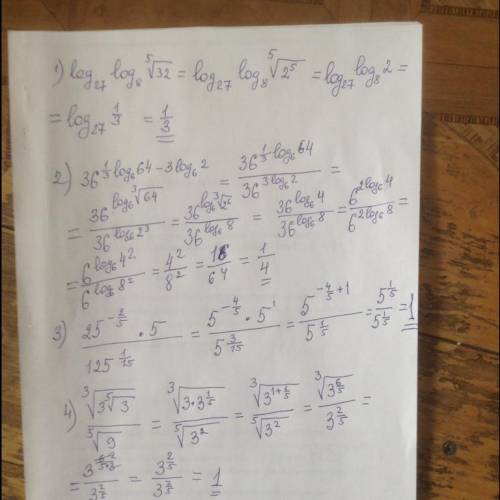 1) log₂₇ log₈ ⁵√32 = log₂₇ log₈ ⁵√2⁵ = log₂₇ log₈ 2 =
= log₂₇ 1/3 = 1/3
2) 36^(1/3 log₆ 64 - 3 log₆ 2) = 36^(1/3 log₆ 64) / 36^(3 log₆ 2) =
= 36^(log₆ ³√64) / 36^(log₆ 2³) = 36^(log₆ ³√2⁶) / 36^(log₆ 8) = 36^(log₆ 4) / 36^(log₆ 8) = 6^(2 log₆ 4) / 6^(2 log₆ 8) =
= 6^(log₆ 4²) / 6^(log₆ 8²) = 4²/8² = 16/64 = 1/4
3) 25^(-2/5) · 5 / 125^(1/15) = 5^(-4/5) · 5¹ / 5^(3/15) = 5^(-4/5 + 1) / 5^(1/5) = 5^(1/5) / 5^(1/5) = 1
4) ³√(3 ⁵√3) / ⁵√9 = ³√(3·3^(1/5)) / ⁵√3² = ³√(3^(1+1/5)) / ⁵√3² = ³√(3^(6/5)) / 3^(2/5) =
= 3^(2/5) / 3^(2/5) = 1